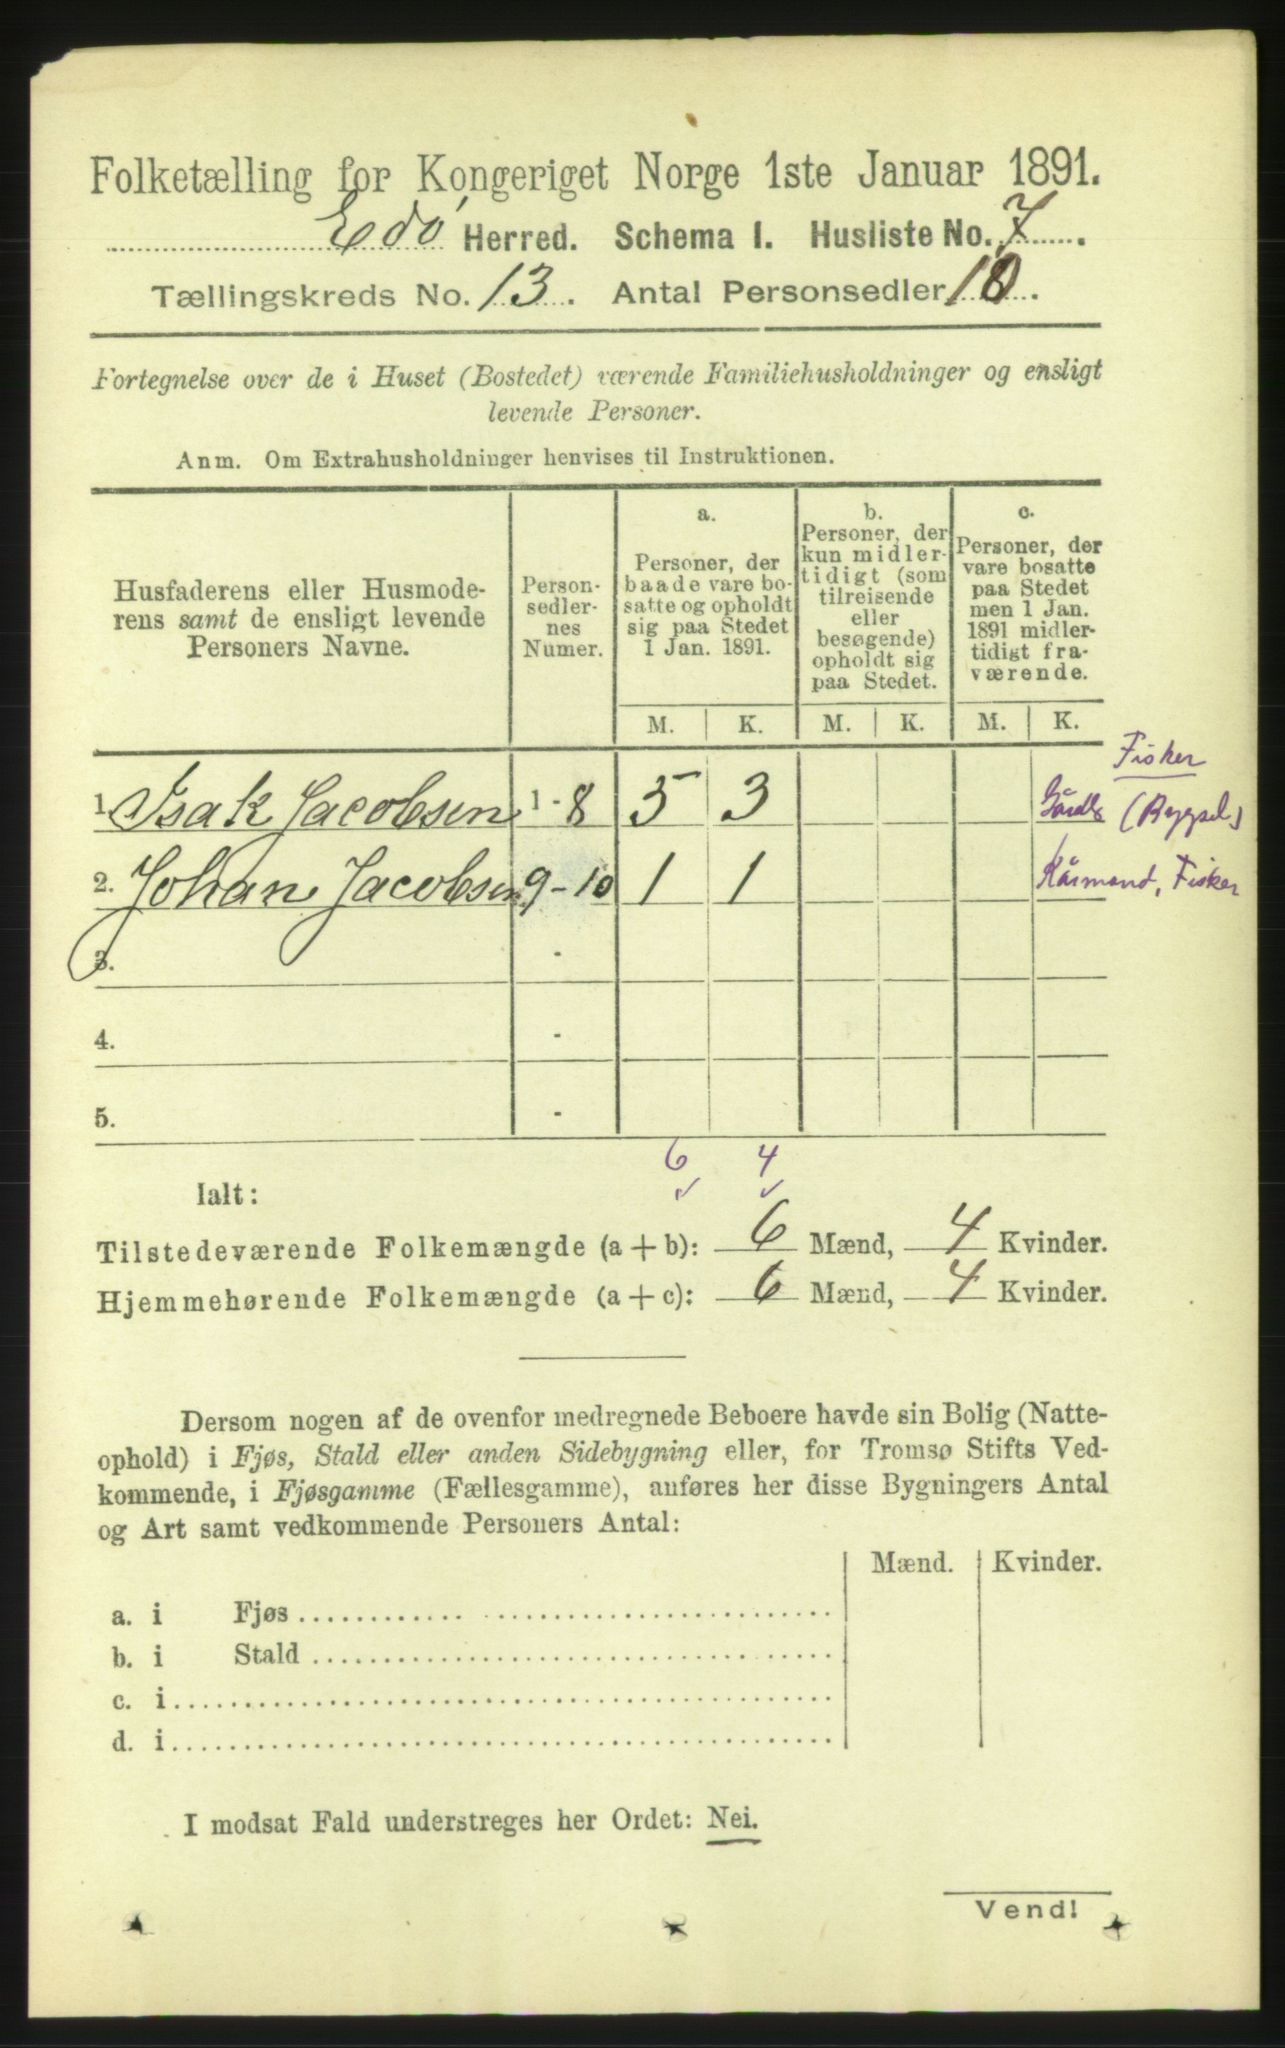 Folketælling for Kongeriget Norge 1ste Januar 1891.
Edø Herred. Schema I. Husliste No. 7.
Tællingskreds No. 13. Antal Personsedler 10.
Fortegnelse over de i Huset (Bostedet) værende Familiehusholdninger og ensligt
levende Personer.
Anm. Om Extrahusholdninger henvises til Instruktionen.
Husfaderens eller Husmode-
rens samt de ensligt levende
Personers Navne.
Person-
sedler-
nes
Numer.
a.
Personer, der
baade vare bo-
satte og opholdt
sig paa Stedet
1 Jan. 1891.
b.
Personer, der
kun midler-
tidigt (som
tilreisende
eller
besøgende)
opholdt sig
paa Stedet.
c.
Personer, der
vare bosatte
paa Stedet
men 1 Jan.
1891 midler-
tidigt fra-
værende.
M. K. M. K. M. K.
Fisker
1. Isak Jacobsen 1 - 8 5 3 (Bygsel)
2. Johan Jacobsen 9 - 10 1 1 Kårmand, Fisker
3. -
4. -
5. -
6 4
Ialt:
Tilstedeværende Folkemængde (a + b): 6 Mænd, 4 Kvinder.
Hjemmehørende Folkemængde (a + c): 6 Mænd, 4 Kvinder.
Dersom nogen af de ovenfor medregnede Beboere havde sin Bolig (Natte-
ophold) i Fjøs, Stald eller anden Sidebygning eller, for Tromsø Stifts Ved-
kommende, i Fjøsgamme (Fællesgamme), anføres her disse Bygningers Antal
og Art samt vedkommende Personers Antal:
Mænd. Kvinder.
a. i Fjøs
b. i Stald
c. i
d. i
I modsat Fald understreges her Ordet: Nei.
Vend!